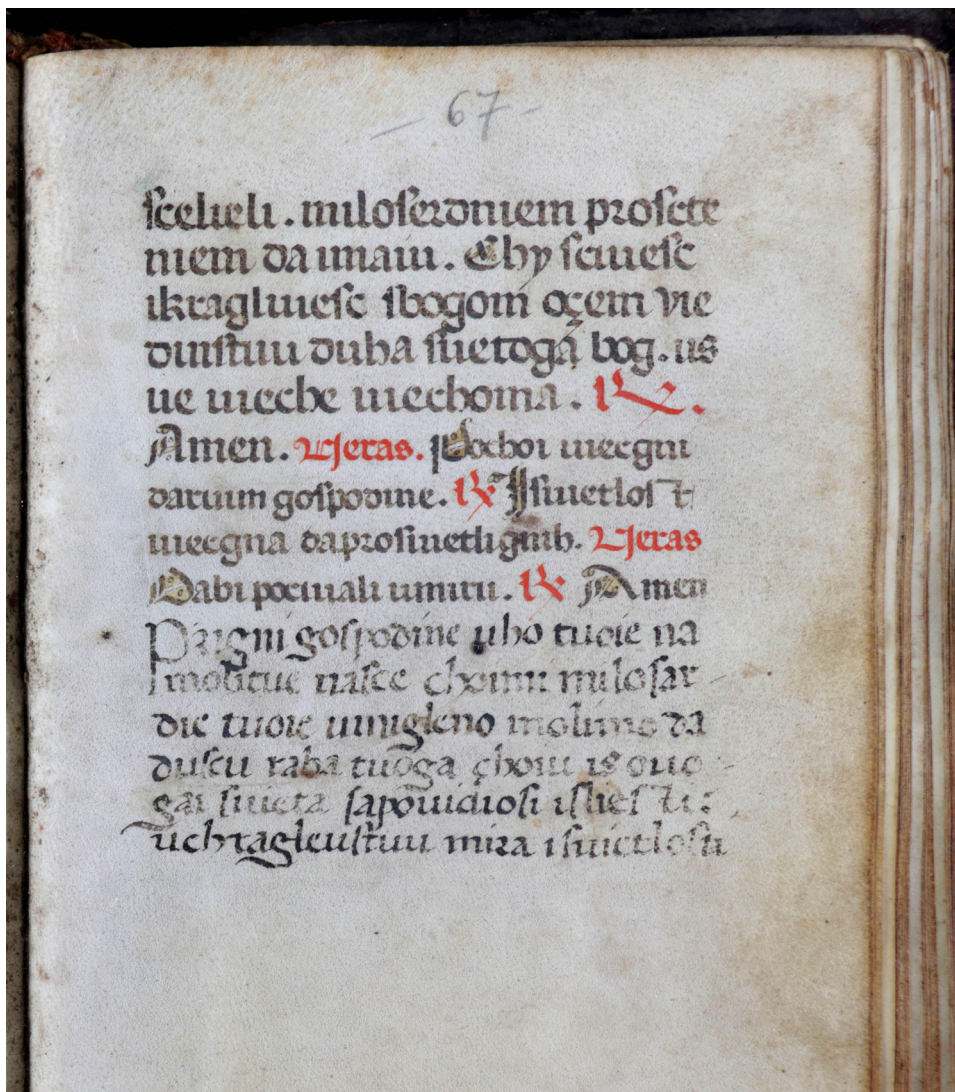 - 67 -
ſcelieli . miloſerdniem proſcte
niem da imaiu . Chy ſciueſc
ikragliuieſc ſbogom oçem vie
dinſtuu duha ſuetogā bog . us
ue uieche uiechoma . ℟ .
Amen . Vjeras . Pochoi uiecgni
daruuim goſpodine . ℟ Iſuietloſt
uiecgna daproſiuetligniħ . Vjeras
Dabi pociuali umiru . ℟ Amen
Prigni goſpodine uho tuoie na
molitue naſce chomu miloſar
die tuoie uinigleno molimo da
duſcu raba tuoga choiu is ouo
gai ſuieta ſapouidioſi iſlieſti
uchragleuſtuu mira i ſuietloſti